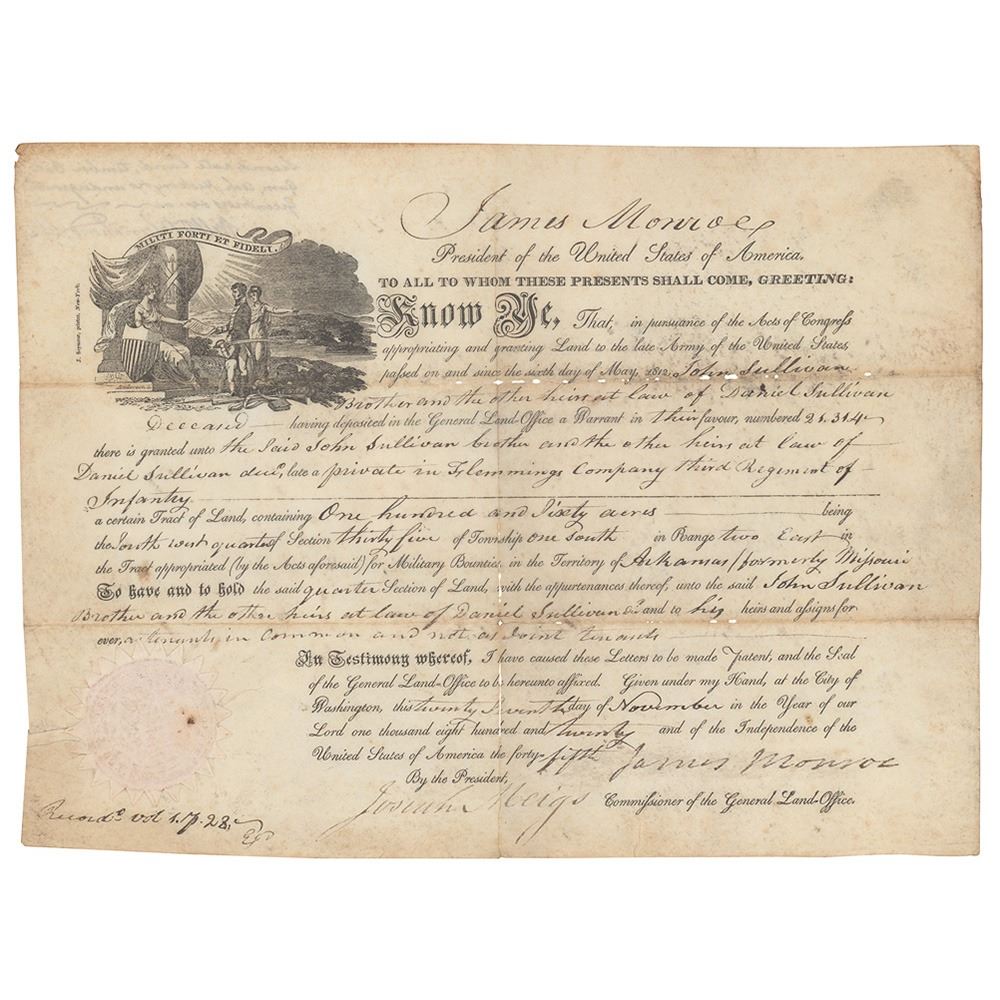 MILITI FORTI ET FIDELI.
J. Seymour, printer, New-York.
James Monroe
President of the United States of America,
TO ALL TO WHOM THESE PRESENTS SHALL COME, GREETING:
Know Ye, That, in pursuance of the Acts of Congress
appropriating and granting Land to the late Army of the United States,
passed on and since the sixth day of May, 1812, John Sullivan
Brother and the other heirs at law of Daniel Sullivan
Deceased having deposited in the General Land-Office a Warrant in their favour, numbered 21.314
there is granted unto the said John Sullivan brother and the other heirs at law of
Daniel Sullivan decd, late a private in Flemmings Company third Regiment of
Infantry
a certain Tract of Land, containing One hundred and Sixty acres being
the South west quarter of Section thirty five of Township one South in Range two East in
the Tract appropriated (by the Acts aforesaid) for Military Bounties, in the Territory of Arkansas/formerly Missouri
To have and to hold the said quarter Section of Land, with the appurtenances thereof, unto the said John Sullivan
Brother and the other heirs at law of Daniel Sullivan and to his heirs and assigns for
ever, as tenants in Common and not as Joint tenants
In Testimony whereof, I have caused these Letters to be made Patent, and the Seal
of the General Land-Office to be hereunto affixed. Given under my Hand, at the City of
Washington, this twenty Seventh day of November in the Year of our
Lord one thousand eight hundred and twenty and of the Independence of the
United States of America the forty-fifth James Monroe
By the President,
Josiah Meigs Commissioner of the General Land-Office.
Recordd. vol 1. p. 28.